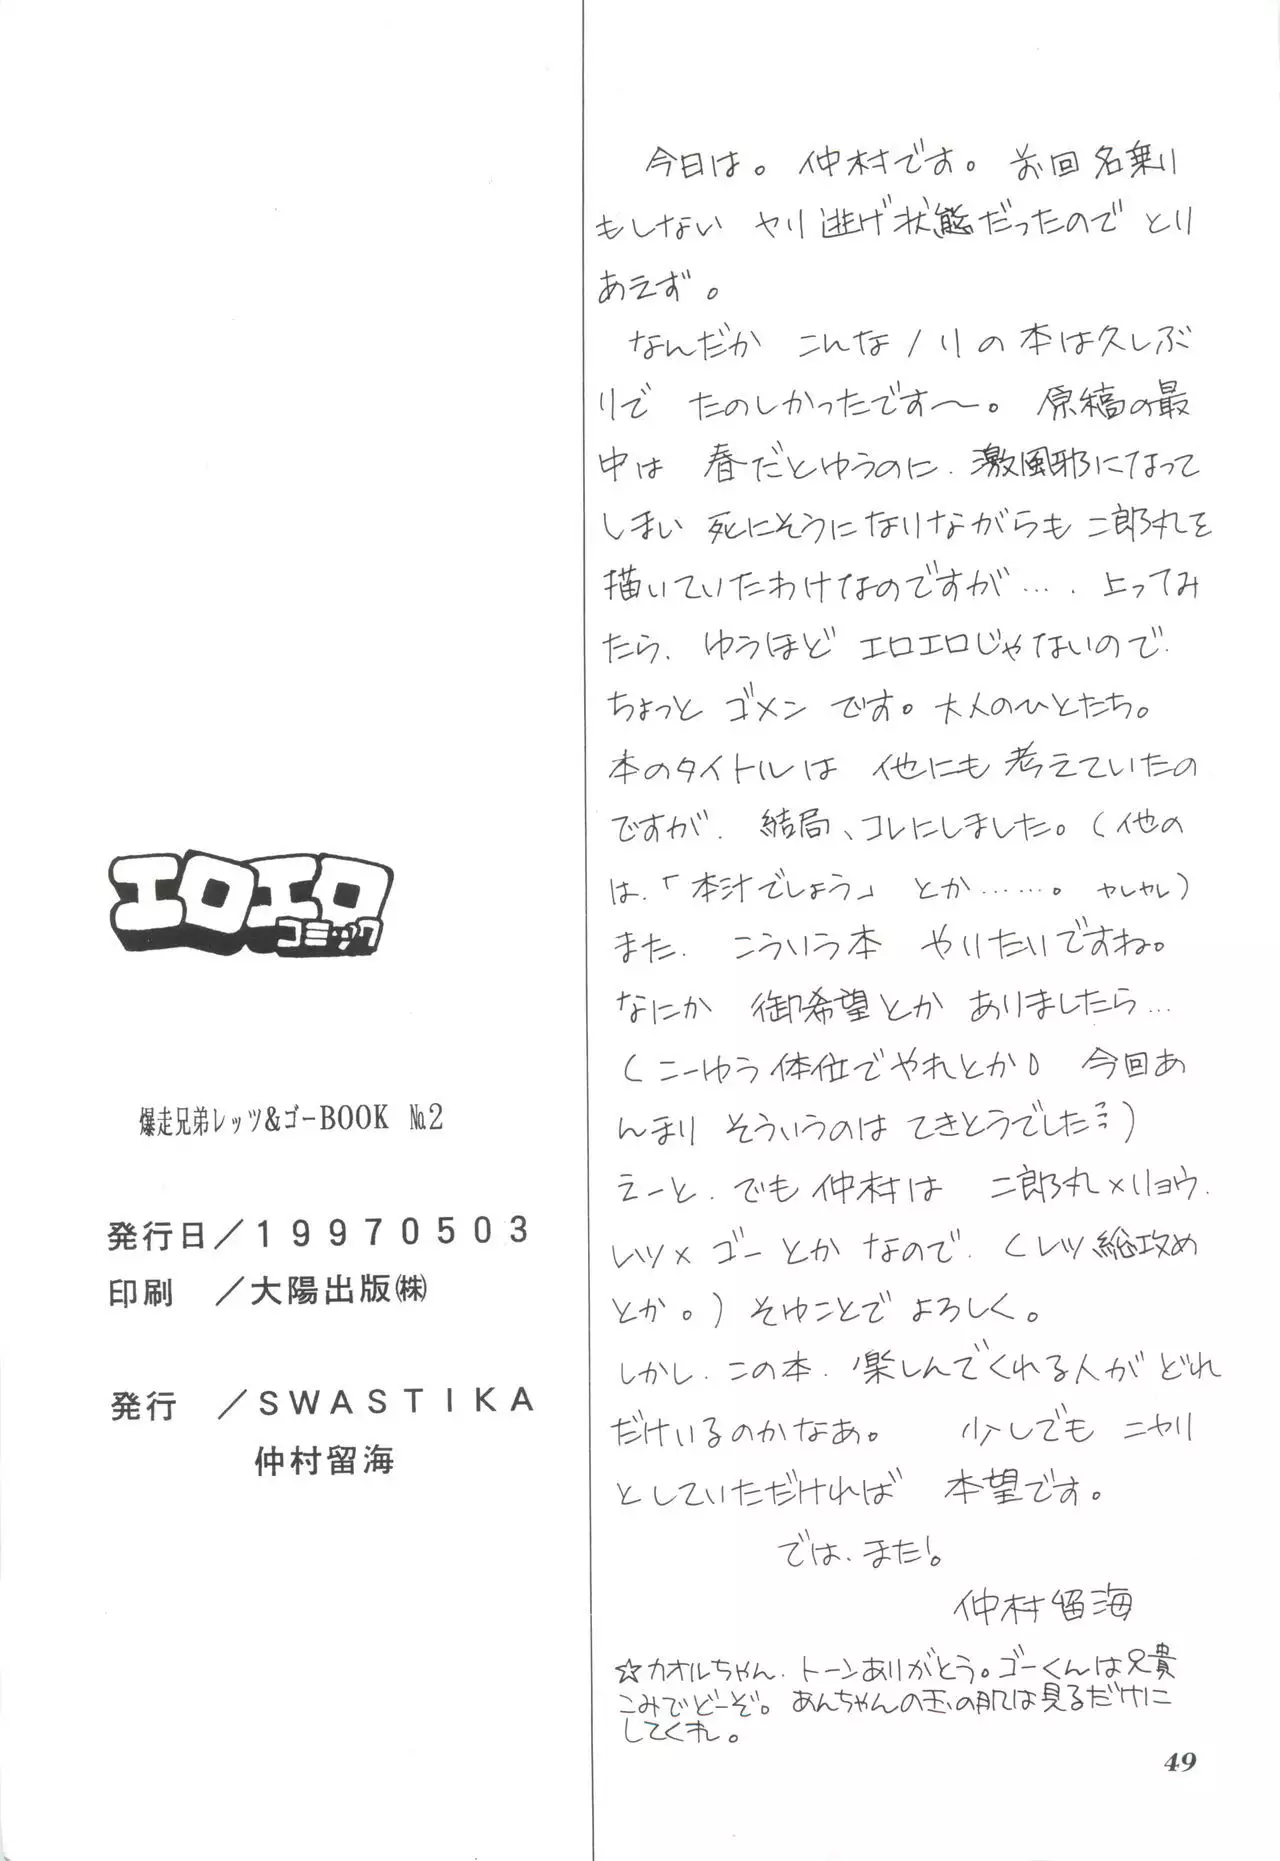 今日は。仲村です。前回名乗り
もしない ヤリ逃げ状態だったので とり
あえず。
なんだか こんなノリの本は久しぶ
りで たのしかったです〜。原稿の最
中は 春だとゆうのに、激風邪になって
しまい 死にそうになりながらも 二郎丸を
描いていたわけなのですが…。上ってみ
たら、ゆうほど エロエロじゃないので、
ちょっと ゴメン です。大人のひとたち。
本のタイトルは 他にも 考えていたの
ですが、結局、コレにしました。(他の
は、「本汁でしょう」とか……。ヤレヤレ)
また、こういう本 やりたいですね。
なにか 御希望とか ありましたら…
(こーゆう体位でやれとか) 今回あ
んまり そういうのは てきとうでした…)
えーと、でも 仲村は 二郎丸×リョウ、
レツ×ゴー とか なので、(レツ総攻め
とか。) そゆことで よろしく。
しかし、この本、楽しんでくれる人が どれ
だけいるのかなあ。少しでも ニヤリ
としていただければ 本望です。
では、また!。
仲村留海
☆カオルちゃん、トーンありがとう。ゴーくんは兄貴
こみでどーぞ。あんちゃんの玉の肌は見るだけに
してくれ。
49
エロエロ
コミック
爆走兄弟レッツ&ゴーBOOK №2
発行日/19970503
印刷 /大陽出版㈱
発行 /SWASTIKA
仲村留海